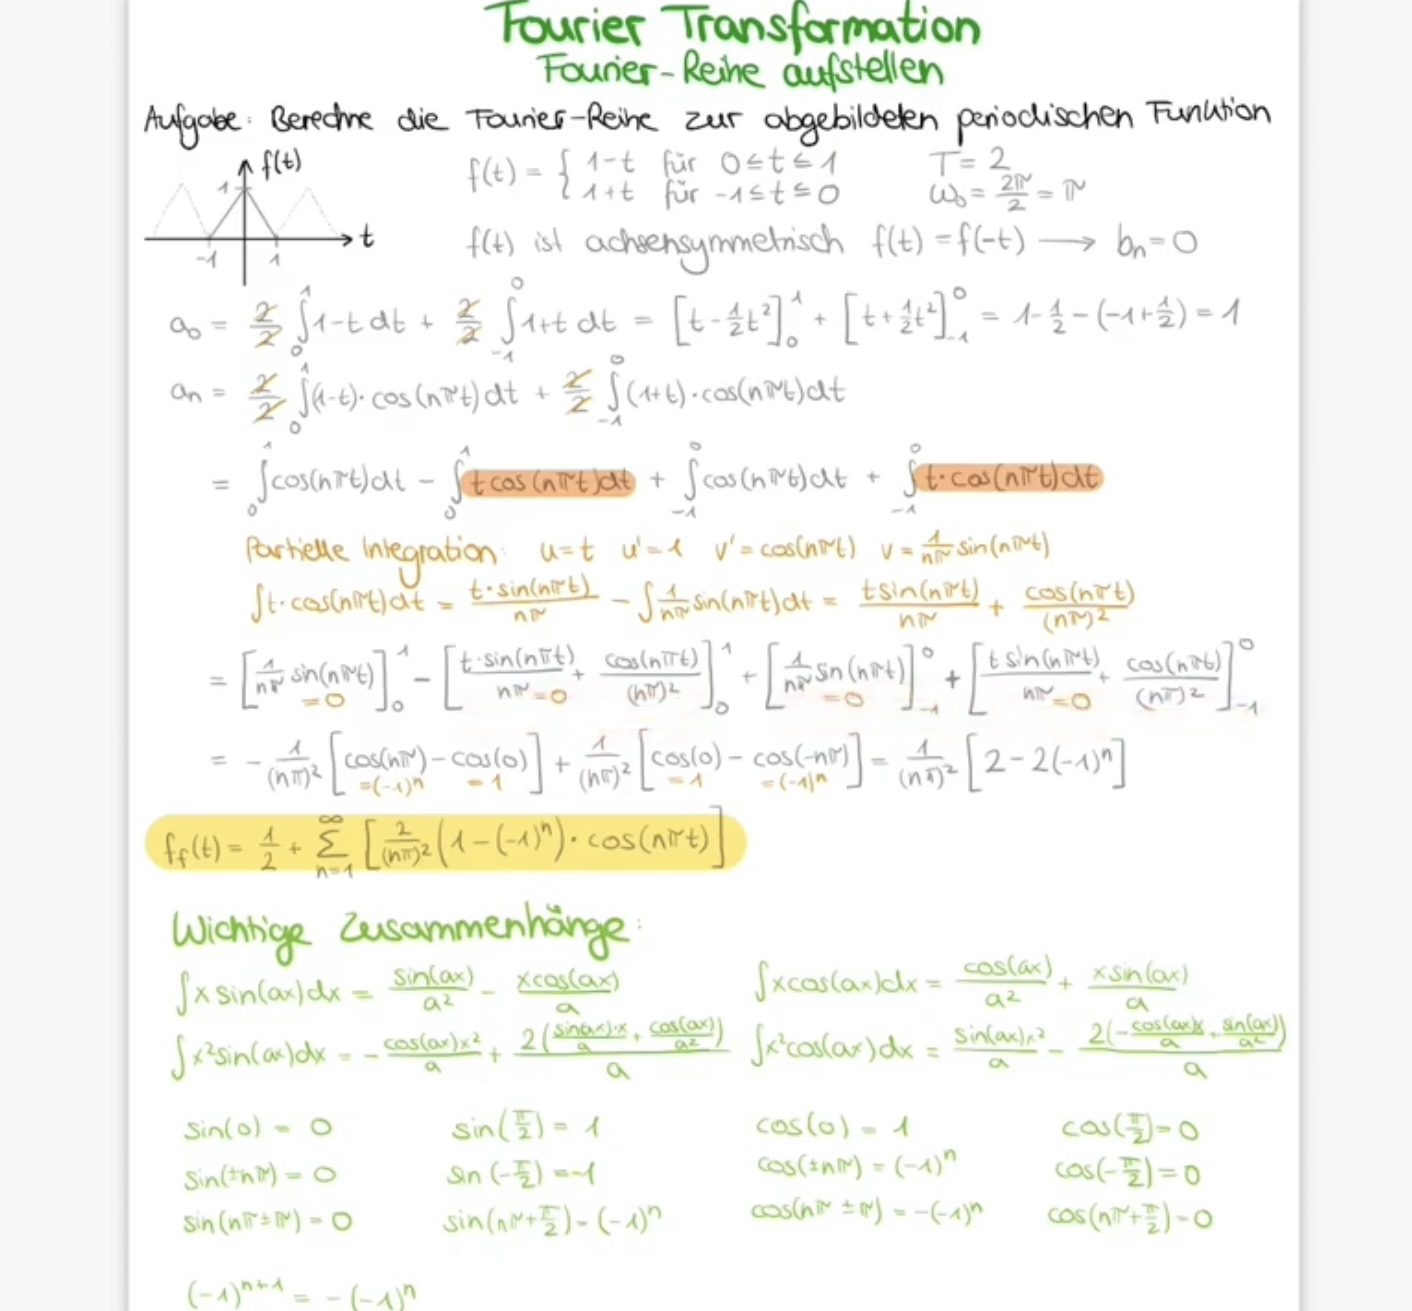 Fourier Transformation
Fourier-Reihe aufstellen
Aufgabe: Berechne die Fourier-Reihe zur abgebildeten periodischen Funktion
f(t)
1
-1
1
t
f(t) = { 1-t für 0≤t≤1
1+t für -1≤t≤0
T = 2
ω₀ = 2π/2 = π
f(t) ist achsensymmetrisch f(t) = f(-t) ⟶ bn = 0
a₀ = 2/2 ∫₀¹ 1-t dt + 2/2 ∫₋₁⁰ 1+t dt = [t - 1/2 t²]₀¹ + [t + 1/2 t²]₋₁⁰ = 1 - 1/2 - (-1 + 1/2) = 1
an = 2/2 ∫₀¹ (1-t)·cos(nπt)dt + 2/2 ∫₋₁⁰ (1+t)·cos(nπt)dt
= ∫₀¹ cos(nπt)dt - ∫₀¹ t cos(nπt)dt + ∫₋₁⁰ cos(nπt)dt + ∫₋₁⁰ t·cos(nπt)dt
Partielle Integration: u=t u'=1 v'=cos(nπt) v = 1/nπ sin(nπt)
∫t·cos(nπt)dt = t·sin(nπt)/nπ - ∫ 1/nπ sin(nπt)dt = t sin(nπt)/nπ + cos(nπt)/(nπ)²
= [1/nπ sin(nπt) =0]₀¹ - [t·sin(nπt)/nπ =0 + cos(nπt)/(nπ)²]₀¹ + [1/nπ sin(nπt) =0]₋₁⁰ + [t sin(nπt)/nπ =0 + cos(nπt)/(nπ)²]₋₁⁰
= - 1/(nπ)² [cos(nπ) - cos(0)] + 1/(nπ)² [cos(0) - cos(-nπ)] = 1/(nπ)² [2 - 2(-1)ⁿ]
=(-1)ⁿ =1 =1 =(-1)ⁿ
f_f(t) = 1/2 + ∑_{n=1}^∞ [2/(nπ)² (1-(-1)ⁿ)·cos(nπt)]
Wichtige Zusammenhänge:
∫x sin(ax)dx = sin(ax)/a² - x cos(ax)/a ∫x cos(ax)dx = cos(ax)/a² + x sin(ax)/a
∫x² sin(ax)dx = - cos(ax)x²/a + 2(sin(ax)·x/a + cos(ax)/a²)/a ∫x² cos(ax)dx = sin(ax)x²/a - 2(-cos(ax)x/a + sin(ax)/a²)/a
sin(0) = 0 sin(π/2) = 1 cos(0) = 1 cos(π/2) = 0
sin(±nπ) = 0 sin(-π/2) = -1 cos(±nπ) = (-1)ⁿ cos(-π/2) = 0
sin(nπ±π) = 0 sin(nπ+π/2) = (-1)ⁿ cos(nπ±π) = -(-1)ⁿ cos(nπ+π/2) = 0
(-1)ⁿ⁺¹ = -(-1)ⁿ